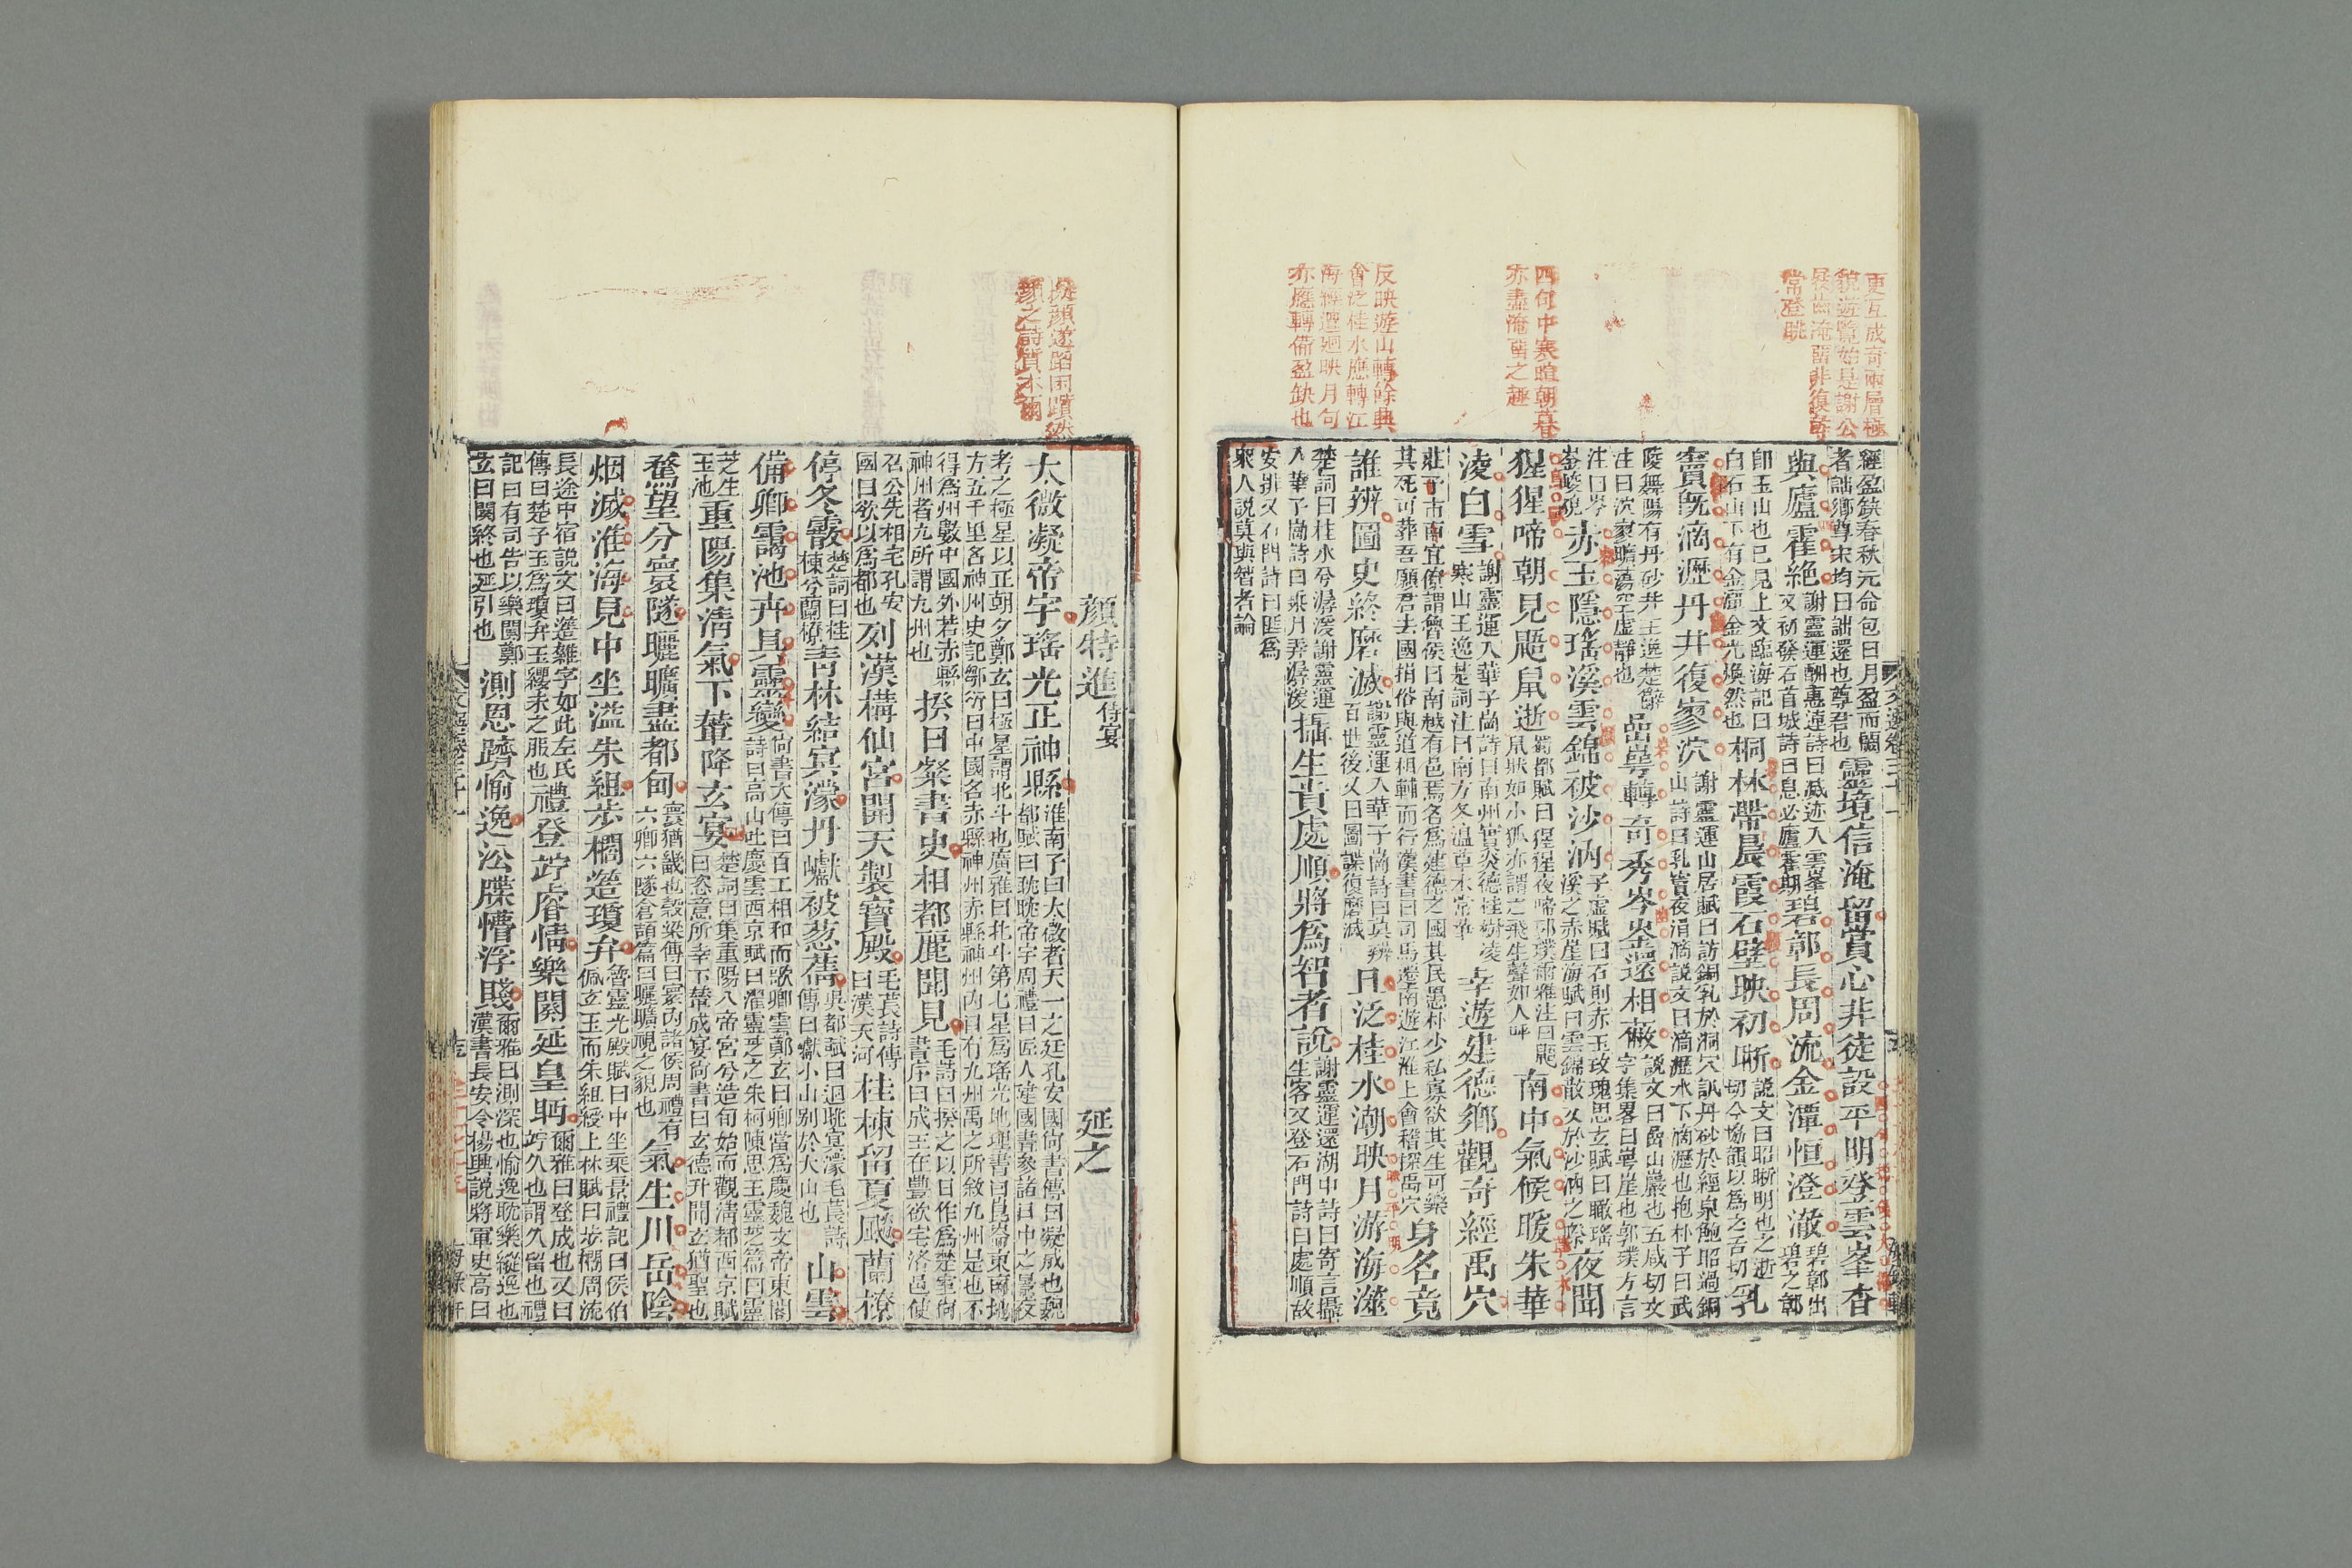 更互成奇兩層極
貌遊覽始是謝公
屐齒淹留非復尋
常登眺
四句中寒暄朝暮
亦盡淹留之趣
反映遊山轉餘典
會泛桂水應轉江
海轉遭迴映月句
亦應轉備盈缺也
經盈鈌春秋元命包曰月盈而闕
者詘鄉尊宋均曰詘還也尊君也
靈境信淹留賞心非徒設平明登雲峯杳
與廬霍絕
謝靈運酬惠連詩曰滅迹入雲峯
又初發石首城詩曰息必廬霍期
碧鄣長周流金潭恒澄澈
碧鄣出
碧之鄣
卽玉山也已見上文臨海記曰
白石山下有金潭金光煥然也
桐林帶晨霞石壁映初晣
說文曰昭晣明也之逝
切今協韻以爲之舌切
乳
竇旣滴瀝丹井復寥泬
謝靈運山居賦曰訪銅乳於洞穴訊丹砂於經泉鮑昭過銅
山詩曰乳竇夜涓滴說文曰滴瀝水下滴瀝也抱朴子曰武
陵舞陽有丹砂井王逸楚辭
注曰泬寥曠蕩空虛靜也
嵒崿轉奇秀岑崟還相蔽
說文曰嵒山巖也五咸切文
字集畧曰崿崖也郭璞方言
注曰岑
崟峻貌
赤玉隱瑤溪雲錦被沙汭
子虛賦曰石則赤玉玫瑰思玄賦曰瞰瑤
溪之赤崖海賦曰雲錦散文於沙汭之際
夜聞
猩猩啼朝見鼯鼠逝
蜀都賦曰猩猩夜啼郭璞爾雅注曰鼯
鼠狀如小狐亦謂之飛生聲如人呼
南中氣候暖朱華
淩白雪
謝靈運入華子崗詩曰南州實炎德桂樹凌
寒山王逸楚詞注曰南方冬溫草木常華
幸遊建德鄉觀奇經禹穴
莊子市南宜僚謂魯侯曰南越有邑焉名爲建德之國其民愚朴少私寡欲其生可樂
其死可葬吾願君去國捐俗與道相輔而行漢書曰司馬遷南遊江淮上會稽探禹穴
身名竟
誰辨圖史終磨滅
謝靈運入華子崗詩曰莫辨
百世後又曰圖諜復磨滅
且泛桂水潮映月游海澨
楚詞曰桂水兮潺湲謝靈運
入華子崗詩曰乘月弄潺湲
攝生貴處順將爲智者說
謝靈運還湖中詩曰寄言攝
生客又登石門詩曰處順故
安排又石門詩曰匪爲
衆人說莫與智者論
顏特進
侍宴
延之
太微凝帝宇瑤光正神縣
淮南子曰太微者天一之廷孔安國尚書傳曰凝成也魏
都賦曰耽耽帝宇周禮曰匠人建國晝參諸日中之景夜
考之極星以正朝夕鄭玄曰極星謂北斗也廣雅曰北斗第七星爲瑤光地理書曰崑崙東南地
方五千里名神州史記鄒衍曰中國名赤縣神州赤縣神州內自有九州禹之所敘九州是也不
得爲州數中國外若赤縣
神州者九所謂九州也
揆日粲書史相都麗聞見
毛詩曰揆之以日作爲楚室尚
書序曰成王在豐欲宅洛邑使
召公先相宅孔安
國曰欲以爲都也
列漢構仙宮開天製寶殿
毛萇詩傳
曰漢天河
桂棟留夏飈蘭橑
停冬霰
楚詞曰桂
棟兮蘭橑
靑林結冥濛丹巘被葱蒨
吳都賦曰迴眺冥濛毛萇詩
傳曰巘小山别於大山也
山雲
備卿靄池卉具靈變
尚書大傳曰百工相和而歌卿雲鄭玄曰卿當爲慶魏文帝東閣
詩曰高山吐慶雲西京賦曰濯靈芝之朱柯陳思王靈芝篇曰靈
芝生
玉池
重陽集淸氣下輦降玄宴
楚詞曰集重陽入帝宮兮造旬始而觀淸都西京賦
曰恣意所幸下輦成宴尚書曰玄德升聞玄猶聖也
騖望分寰隧曬曠盡都甸
寰猶畿也穀梁傳曰寰內諸侯周禮有
六鄉六隧倉頡篇曰曬曠視之貌也
氣生川岳陰
烟滅淮海見中坐溢朱組步櫩簉瓊弁
魯靈光殿賦曰中坐乘景禮記曰侯伯
佩玄玉而朱組綬上林賦曰步櫩周流
長途中宿說文曰簉雜字如此左氏
傳曰楚子玉爲瓊弁玉纓未之服也
禮登竚睿情樂闋延皇眄
爾雅曰登成也又曰
竚久也謂久留也禮
記曰有司告以樂闋鄭
玄曰闋終也延引也
測恩躋愉逸沿牒懵浮賤
爾雅曰測深也愉逸耽樂縱逸也
漢書長安令楊興說將軍史高曰